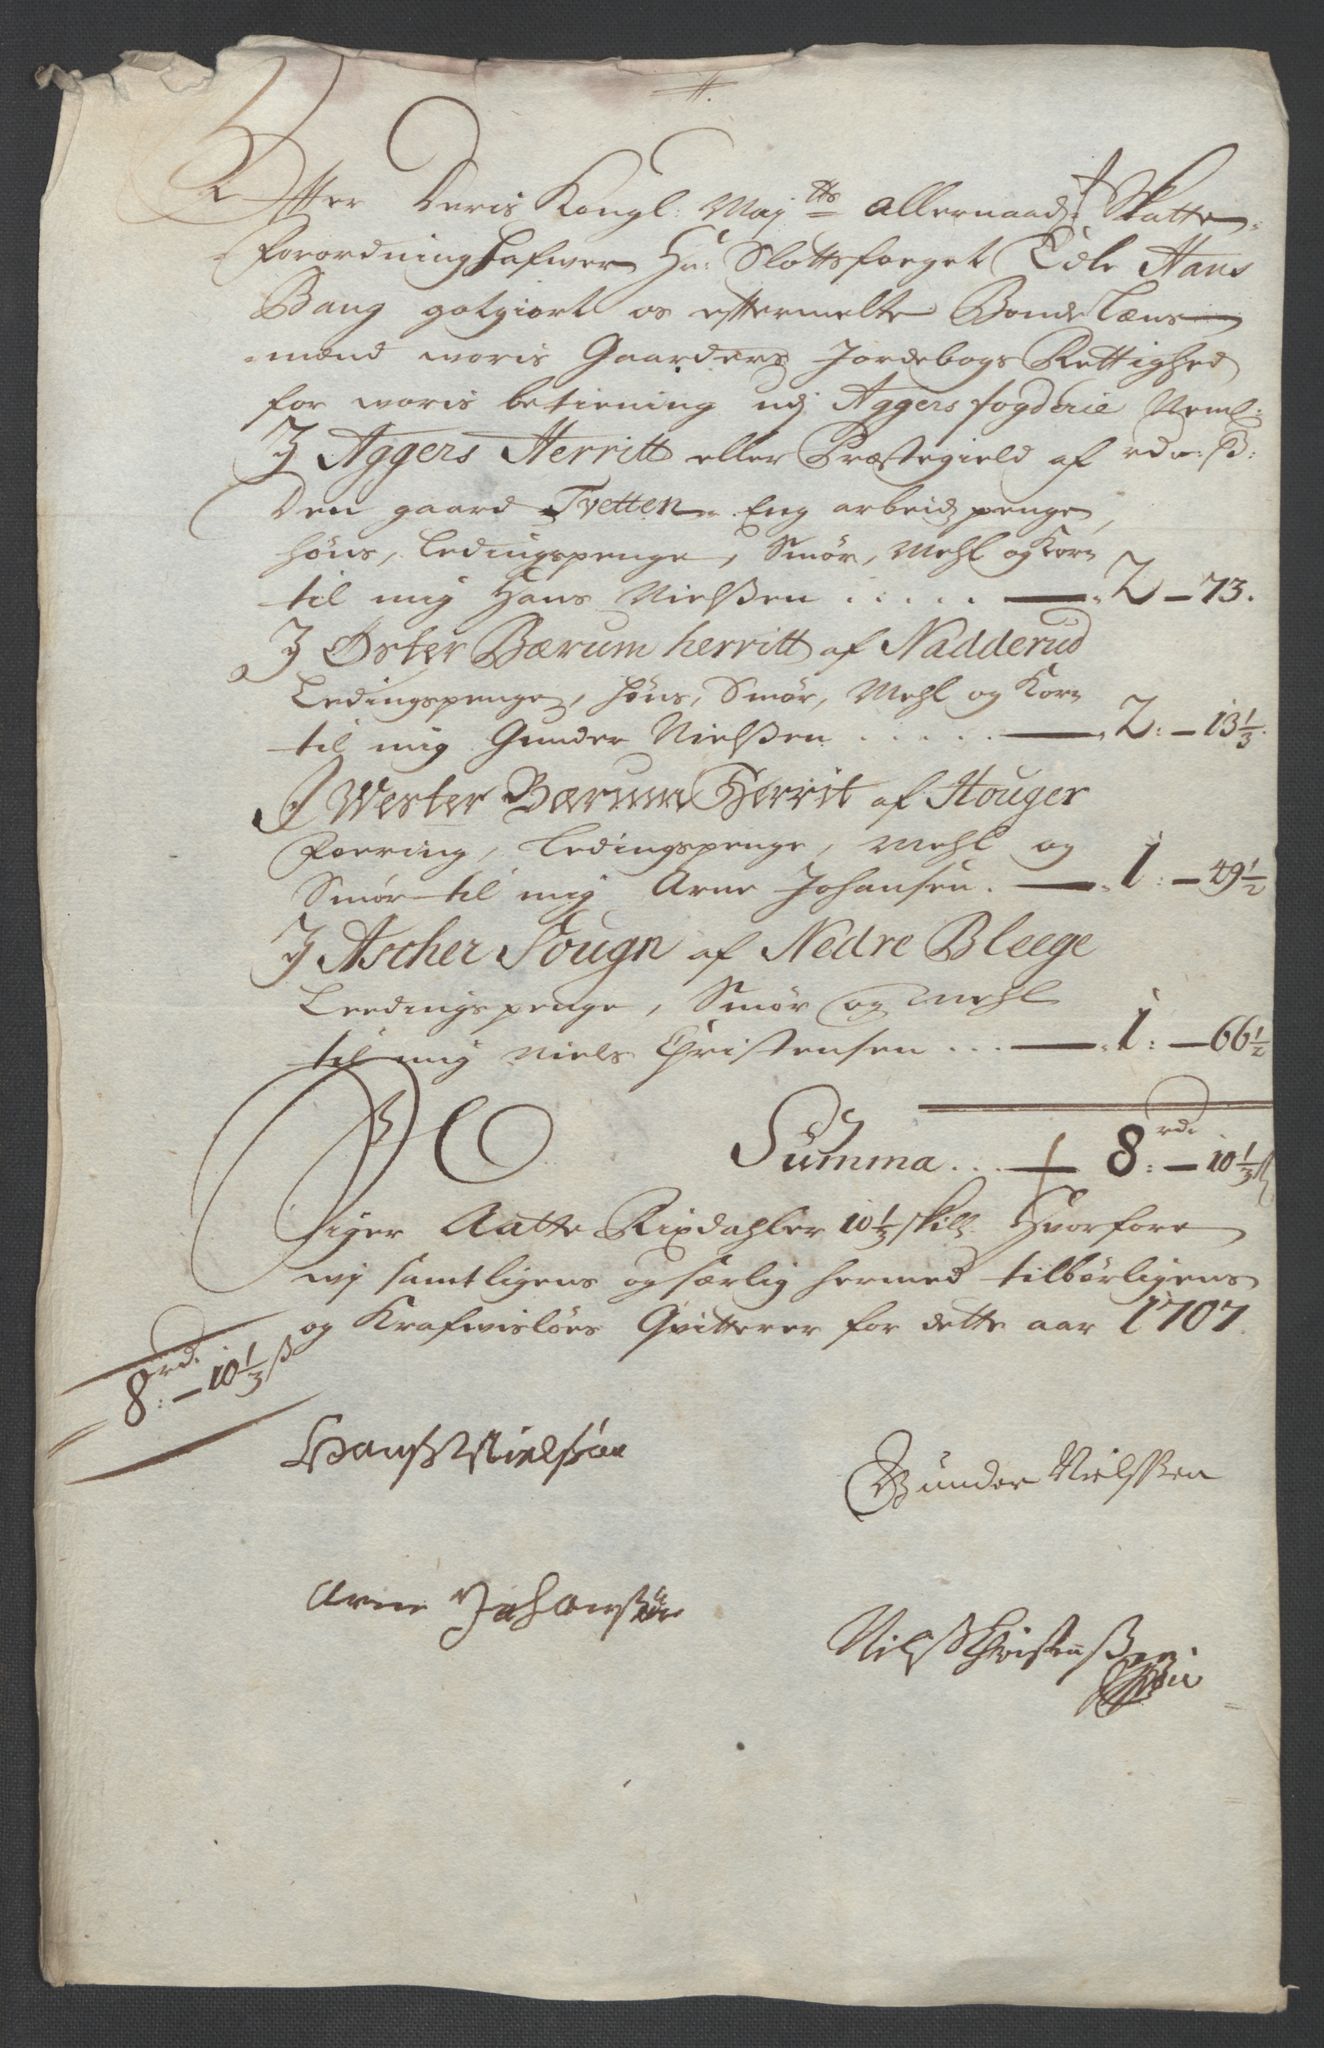 Effter Deris Kongl: Maj:tts allernaad: Skatte
Forordning hafwer Hr: Slottsfoeget Edle Hans
Bang gotgiort os effttermelte Bonde Læns
mænd woris Gaarders Jordebogs Rettighed
for woris betiening udj Aggers fogderie Neml:
J Aggers Herritt eller Præstegield af rdr: ß:
Den gaard Tvetten Eng arbeids penge,
høns, Ledingspenge, Smør, Mehl og Korn
til mig Hans Nielssen ..... 2 – 73.
J Øster Bærum herritt af Nadderud
Ledingspenge, høns, Smør, Mehl og Korn
til mig Gunder Nielssen ..... 2: – 13 1/3.
J Wester Bærum Herrit af Houger
Foering, Ledingspenge, Mehl og
Smør til mig Arne Johansen. 1: – 49 1/2
J Ascher Sougn af Nedre Bleege
Leedingspenge, Smør og Mehl
til mig Niels Christensen ... 1: – 66 1/2
Summa ... 8 rd: – 10 1/3 ß
Siger Aatte Rixdahler 10 1/3 skill: Hvorfore
wj samtligens og særlig hermed tilbørligens
og Krafwisløes Qvitterer for dette aar 1707.
8 rd: – 10 1/3 ß
Hanss Nielssøn
Gunder Nielssen
Arne Johanssøn
Nilss Christenssen